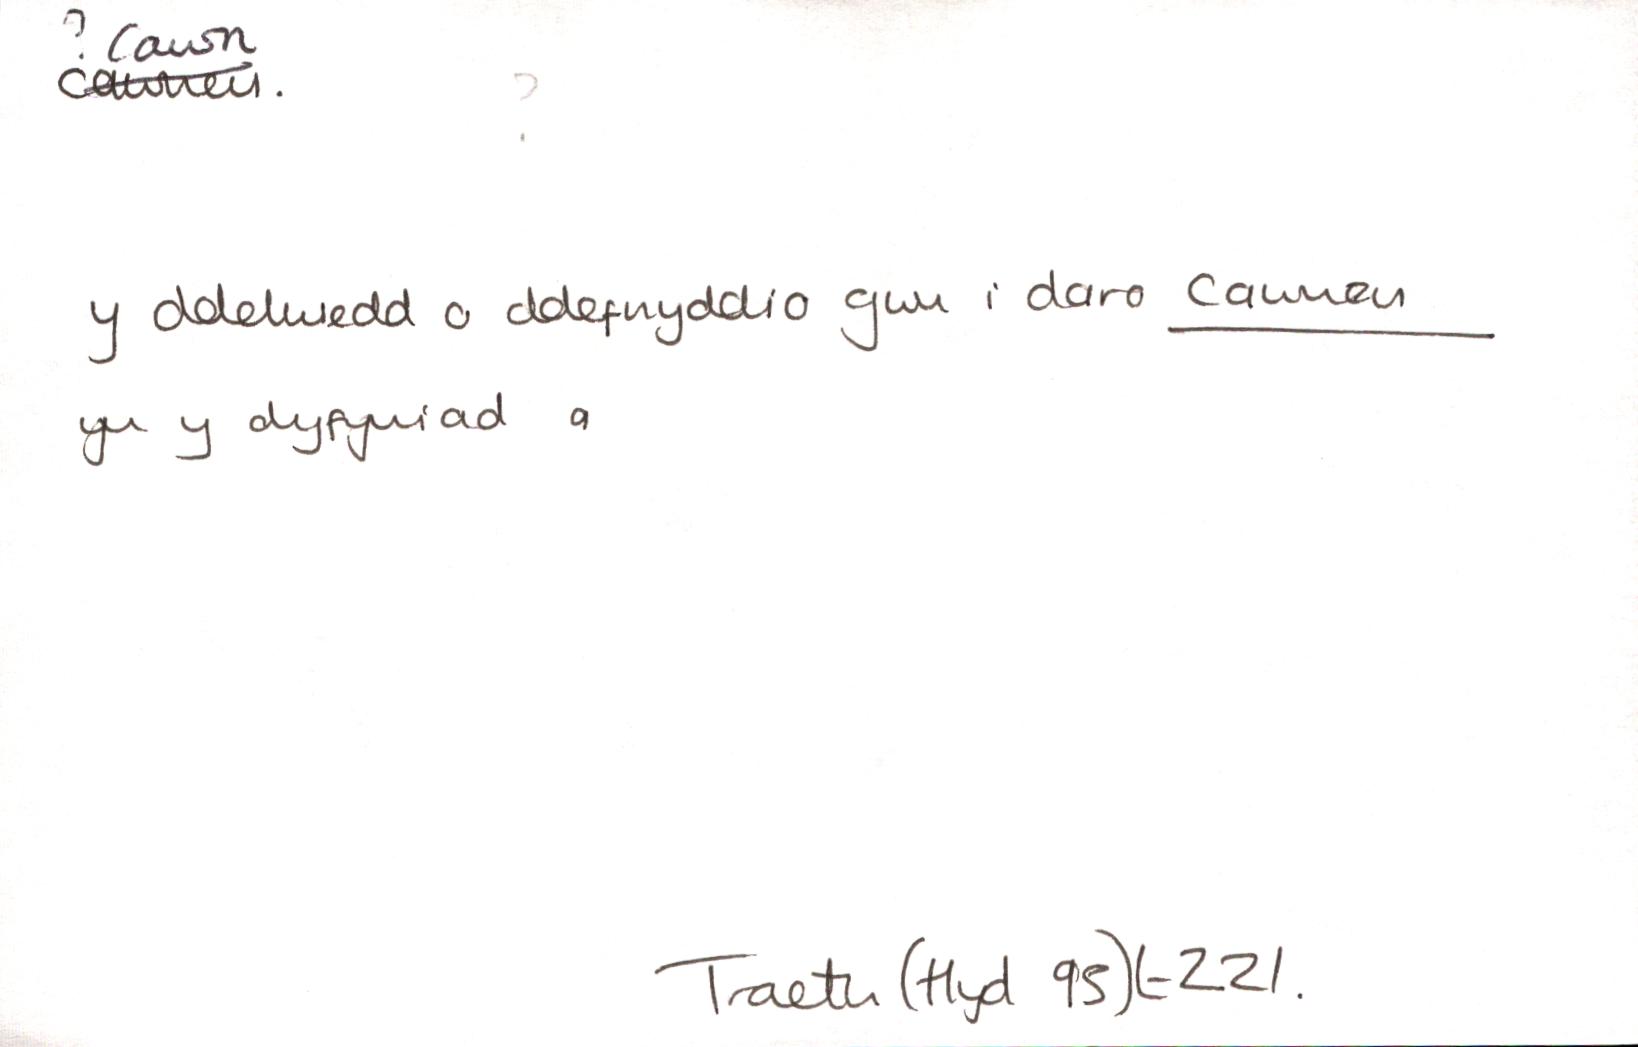 ? Cawn
cawnen.
?
y ddelwedd o ddefnyddio gwn i daro cawnen
yn y dyfyniad a
Traeth (Hyd 95) t-221.